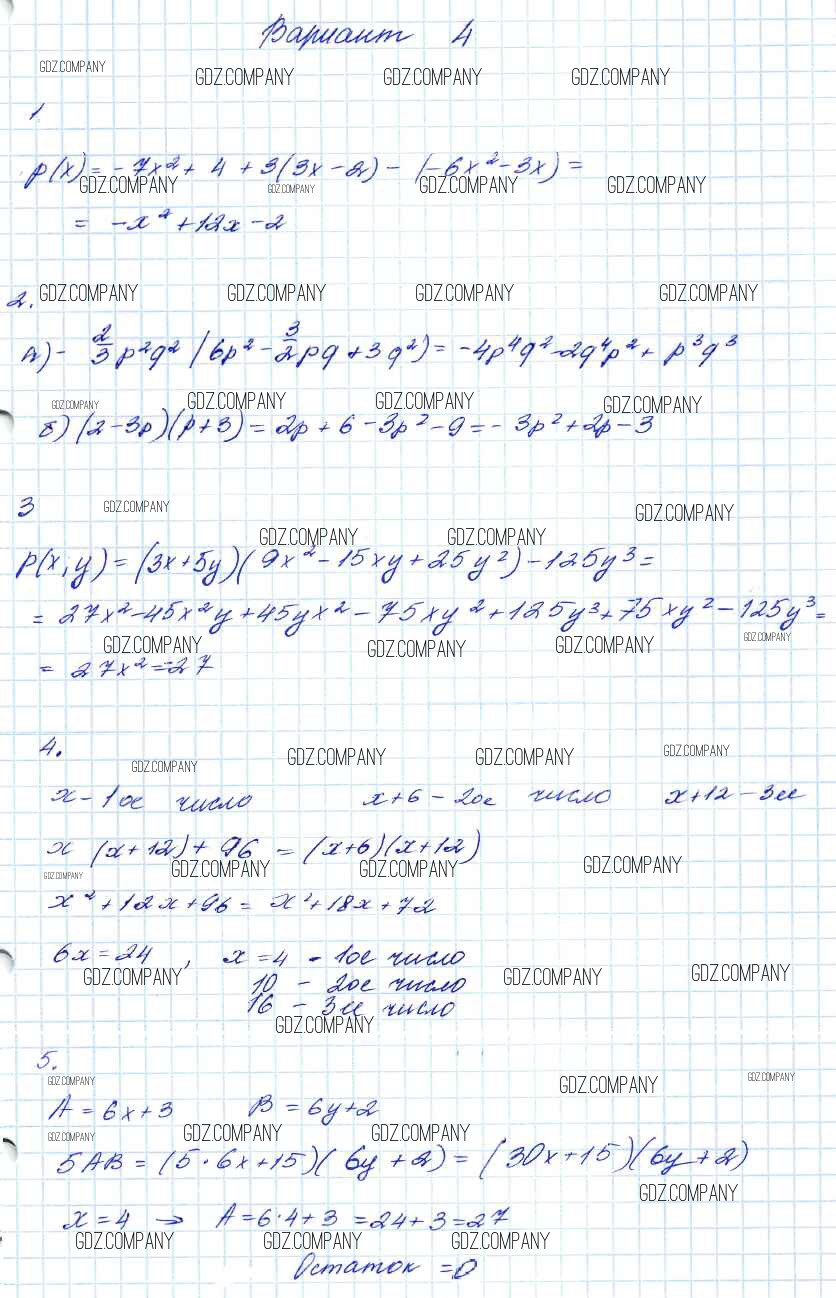 Вариант 4
GDZ.COMPANY GDZ.COMPANY GDZ.COMPANY GDZ.COMPANY
1
p(x) = -7x² + 4 + 3(3x - 2) - (-6x² - 3x) =
GDZ.COMPANY GDZ.COMPANY GDZ.COMPANY GDZ.COMPANY
= -x² + 12x - 2
2. GDZ.COMPANY GDZ.COMPANY GDZ.COMPANY GDZ.COMPANY
а) - 2/3 p²q² (6p² - 3/2 pq + 3q²) = -4p⁴q² - 2q⁴p² + p³q³
GDZ.COMPANY GDZ.COMPANY GDZ.COMPANY GDZ.COMPANY
б) (2 - 3p)(p + 3) = 2p + 6 - 3p² - 9 = - 3p² + 2p - 3
3 GDZ.COMPANY GDZ.COMPANY
GDZ.COMPANY GDZ.COMPANY
p(x, y) = (3x + 5y)(9x² - 15xy + 25y²) - 125y³ =
= 27x² - 45x²y + 45yx² - 75xy² + 125y³ + 75xy² - 125y³ =
GDZ.COMPANY GDZ.COMPANY GDZ.COMPANY GDZ.COMPANY
= 27x² = -27
4.
GDZ.COMPANY GDZ.COMPANY GDZ.COMPANY GDZ.COMPANY
x - 1ое число x + 6 - 2ое число x + 12 - 3ее
x (x + 12) + 96 = (x + 6)(x + 12)
GDZ.COMPANY GDZ.COMPANY GDZ.COMPANY GDZ.COMPANY
x² + 12x + 96 = x² + 18x + 72
6x = 24 , x = 4 - 1ое число
GDZ.COMPANY GDZ.COMPANY GDZ.COMPANY
10 - 2ое число
16 - 3ее число
GDZ.COMPANY
5.
GDZ.COMPANY GDZ.COMPANY GDZ.COMPANY
A = 6x + 3 B = 6y + 2
GDZ.COMPANY GDZ.COMPANY GDZ.COMPANY
5AB = (5·6x + 15)(6y + 2) = (30x + 15)(6y + 2)
GDZ.COMPANY
x = 4 → A = 6·4 + 3 = 24 + 3 = 27
GDZ.COMPANY GDZ.COMPANY GDZ.COMPANY
Остаток = 0